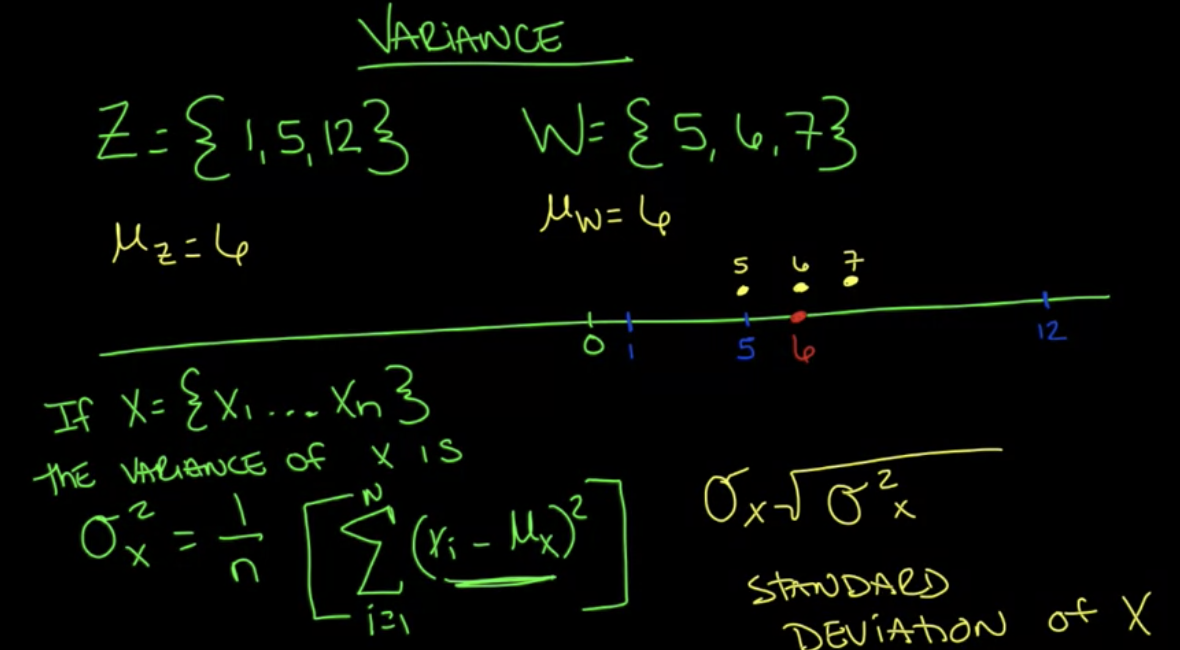 VARIANCE
Z = {1, 5, 12} W = {5, 6, 7}
μ_Z = 6 μ_W = 6
5 6 7
0 1 5 6 12
If X = {x₁ ... xₙ}
the VARIANCE of X is
σ²_X = 1/n [ Σ_{i=1}^{N} (x_i - μ_X)² ]
σ_X √σ²_X
STANDARD
DEVIATION of X